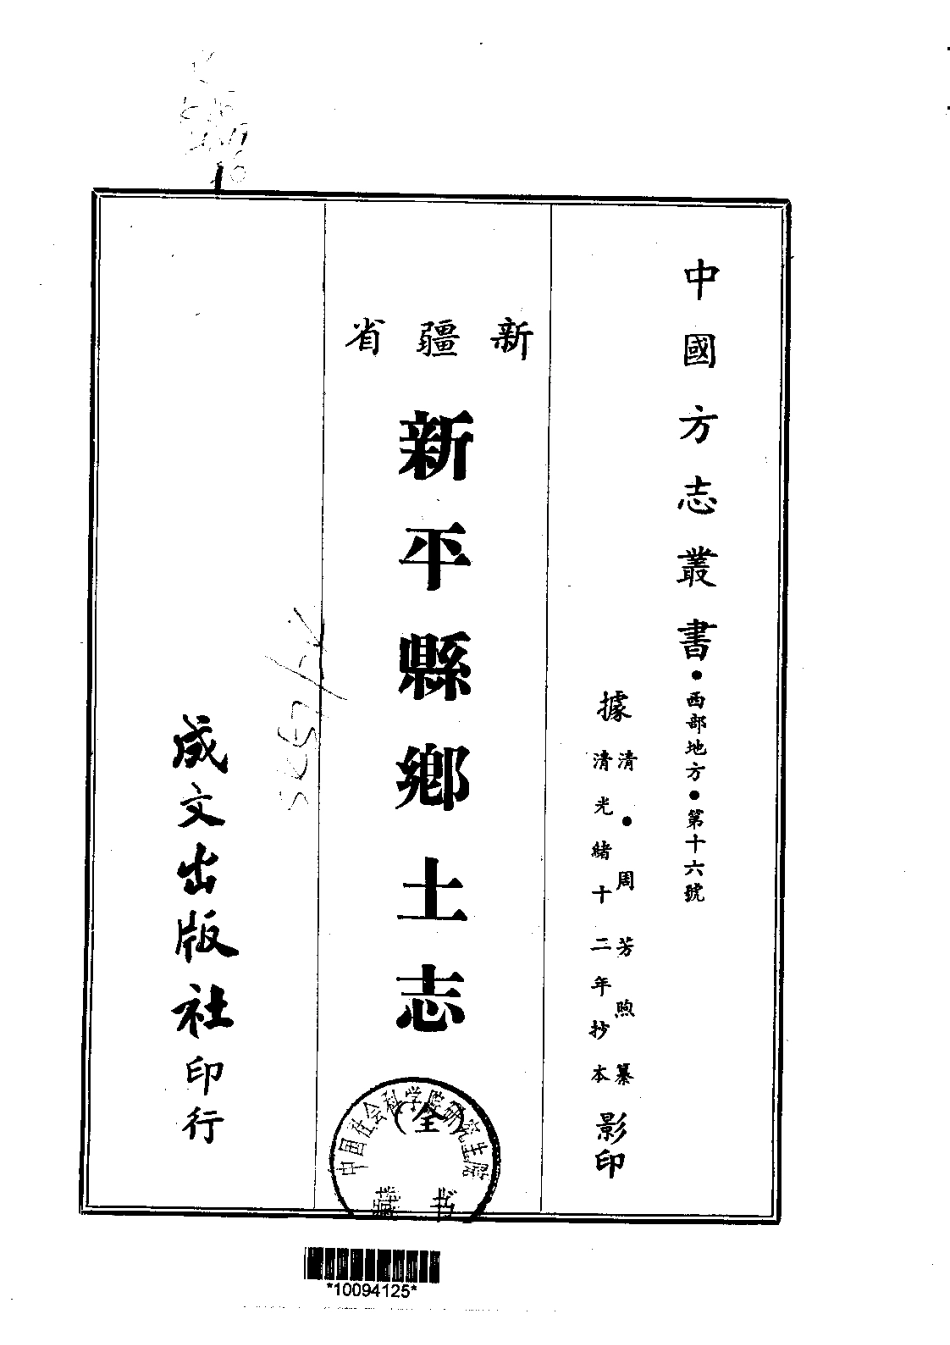 中國方志叢書·西部地方·第十六號
據
清·周芳煦纂
清光緒十二年抄本
影印
新疆省
新平縣鄉土志
(全)
中国社会科学院研究生院
藏书
成文出版社印行
*10094125*